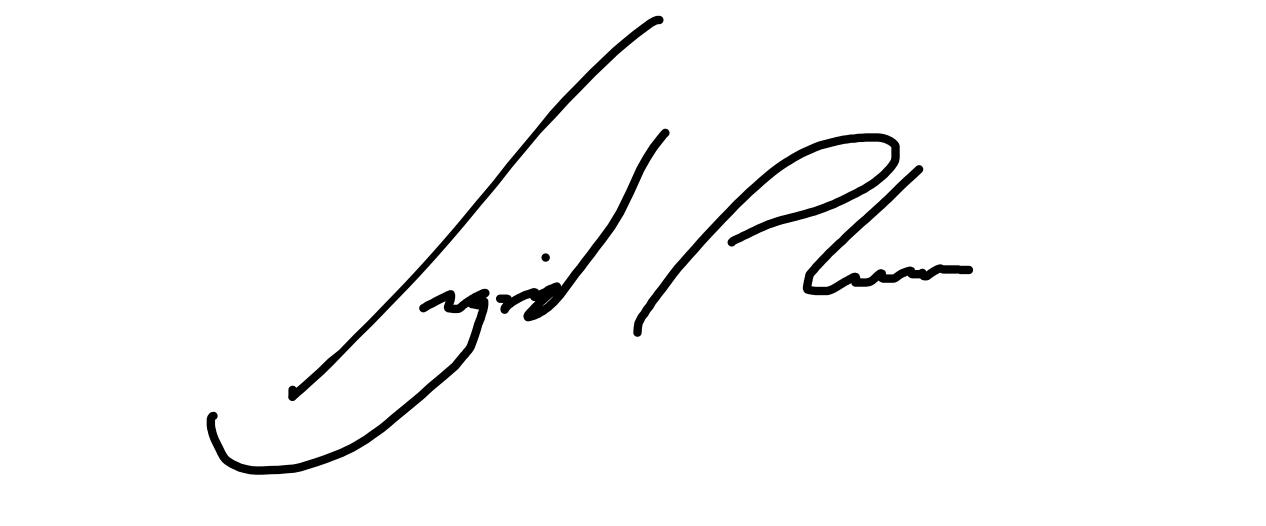 Ingrid Plum